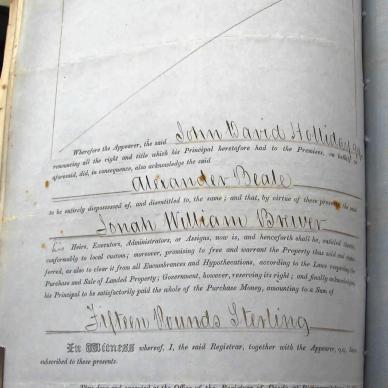 Wherefore the Appearer, the said John David Holliday q.q.
renouncing all the right and title which his Principal heretofore had to the Premises, on behalf as
aforesaid, did, in consequence, also acknowledge the said
Alexander Beale
to be entirely dispossessed of, and disentitled to, the same; and that, by virtue of these presents, the said
Jonah William Brewer
his Heirs, Executors, Administrators, or Assigns, now is, and henceforth shall be, entitled thereto,
conformably to local custom; moreover, promising to free and warrant the Property thus sold and trans-
ferred, as also to clear it from all Encumbrances and Hypothecations, according to the Laws respecting the
Purchase and Sale of Landed Property; Government, however, reserving its right; and finally acknowledging
his Principal to be satisfactorily paid the whole of the Purchase Money, amounting to a Sum of
Fifteen Pounds Sterling
In Witness whereof, I, the said Registrar, together with the Appearer, q.q., have
subscribed to these presents.
Thus done and executed at the Office of the Registrar of Deeds at